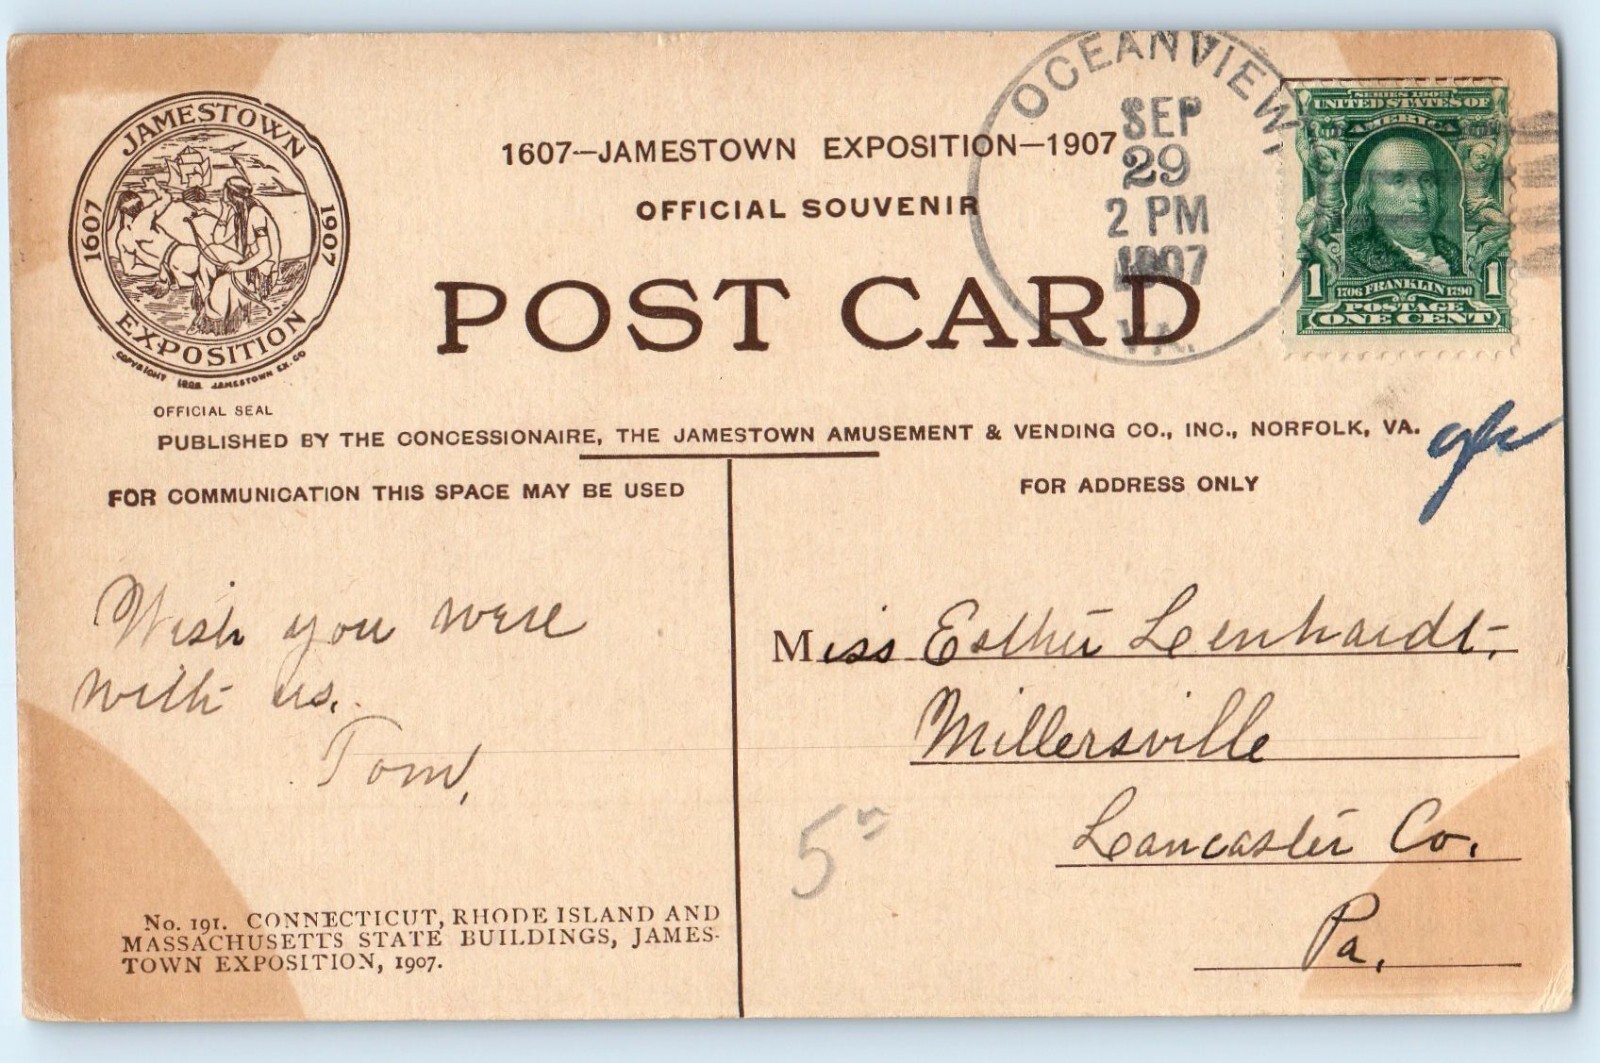 JAMESTOWN
1607
1907
EXPOSITION
COPYRIGHT 1906 JAMESTOWN EX. CO
OFFICIAL SEAL
1607—JAMESTOWN EXPOSITION—1907
OFFICIAL SOUVENIR
POST CARD
OCEANVIEW
SEP
29
2 PM
1907
VA.
SERIES 1902
UNITED STATES OF
AMERICA
1 1706 FRANKLIN 1790 1
POSTAGE
ONE CENT
PUBLISHED BY THE CONCESSIONAIRE, THE JAMESTOWN AMUSEMENT & VENDING CO., INC., NORFOLK, VA.
FOR COMMUNICATION THIS SPACE MAY BE USED
FOR ADDRESS ONLY
Wish you were
with us.
Tom,
Miss Esther Lenhardt,
Millersville
Lancaster Co.
Pa.
No. 191. CONNECTICUT, RHODE ISLAND AND
MASSACHUSETTS STATE BUILDINGS, JAMES-
TOWN EXPOSITION, 1907.